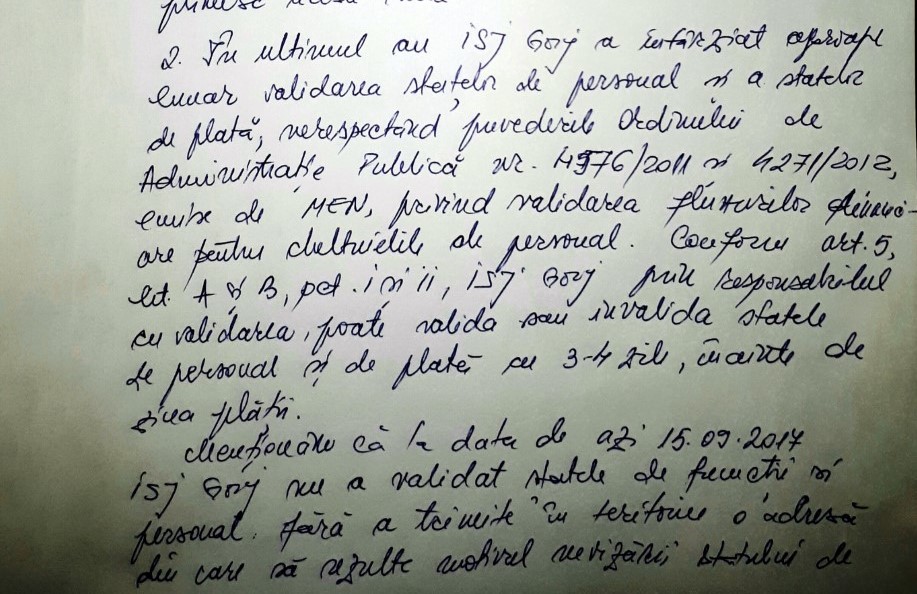 2. În ultimul an ISJ Gorj a întârziat aproape
lunar validarea statelor de personal și a statelor
de plată, nerespectând prevederile Ordinului de
Administrație Publică nr. 4576/2011 și 4271/2012,
emise de MEN, privind validarea fluxurilor financi-
are pentru cheltuielile de personal. Conform art. 5,
lit. A și B, pct. i și ii, ISJ Gorj prin responsabilul
cu validarea, poate valida sau invalida statele
de personal și de plată cu 3-4 zile, înainte de
ziua plății.
Menționăm că la data de azi 15.09.2017
ISJ Gorj nu a validat statele de funcții și
personal. fără a trimite în teritoriu o adresă
din care să rezulte motivul nevizării statului de